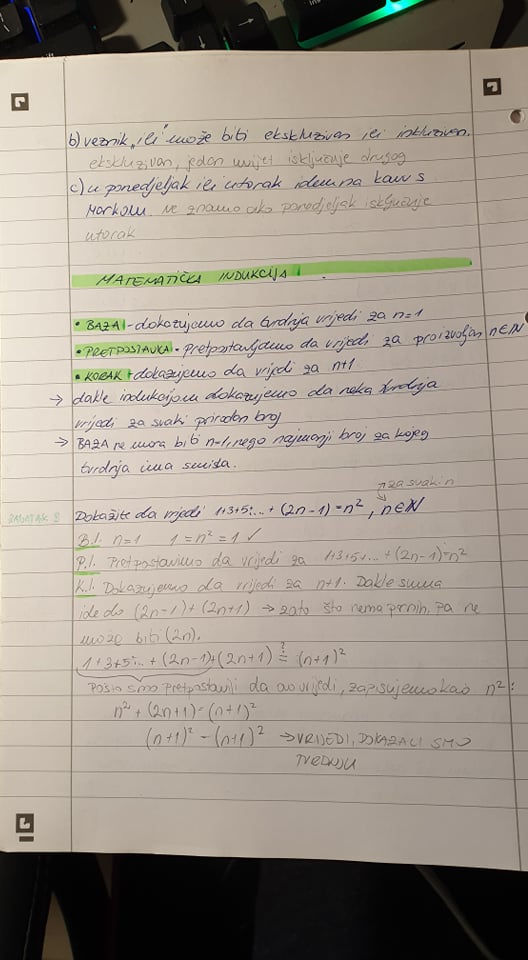 b) veznik "ili" može biti ekskluzivan ili inkluzivan.
ekskluzivan, jedan uvijet isključuje drugog
c) u ponedjeljak ili utorak idem na kavu s
Markom. ne znamo ako ponedjeljak isključuje
utorak
MATEMATIČKA INDUKCIJA
• BAZA - dokazujemo da tvrdnja vrijedi za n=1
• PRETPOSTAVKA - pretpostavljamo da vrijedi za proizvoljan n∈N
• KORAK - dokazujemo da vrijedi za n+1
→ dakle indukcijom dokazujemo da neka tvrdnja
vrijedi za svaki prirodan broj
→ BAZA ne mora biti n=1, nego najmanji broj za kojeg
tvrdnja ima smisla.
za svaki n
ZADATAK Dokažite da vrijedi 1+3+5+...+(2n-1)=n², n∈N
B.I. n=1 1=n²=1 ✓
P.I. Pretpostavimo da vrijedi za 1+3+5+...+(2n-1)=n²
K.I. Dokazujemo da vrijedi za n+1. Dakle suma
ide do (2n-1)+(2n+1) → zato što nema parnih, pa ne
može biti (2n).
1+3+5+...+(2n-1)+(2n+1) ≟ (n+1)²
pošto smo pretpostavili da ovo vrijedi, zapisujemo kao n²:
n²+(2n+1)=(n+1)²
(n+1)²=(n+1)² → VRIJEDI, DOKAZALI SMO
TVRDNJU